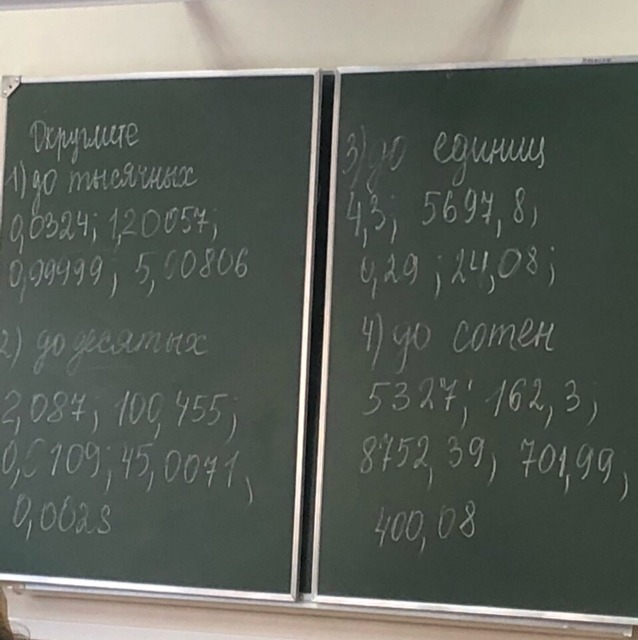 Округлите
1) до тысячных
0,0324; 1,20057;
0,99499; 5,00806
2) до десятых
2,087; 100,455;
0,0109; 45,0071,
0,0028
3) до единиц
4,3; 5697,8;
0,29; 24,08;
4) до сотен
5327; 162,3;
8752,39, 701,99,
400,08